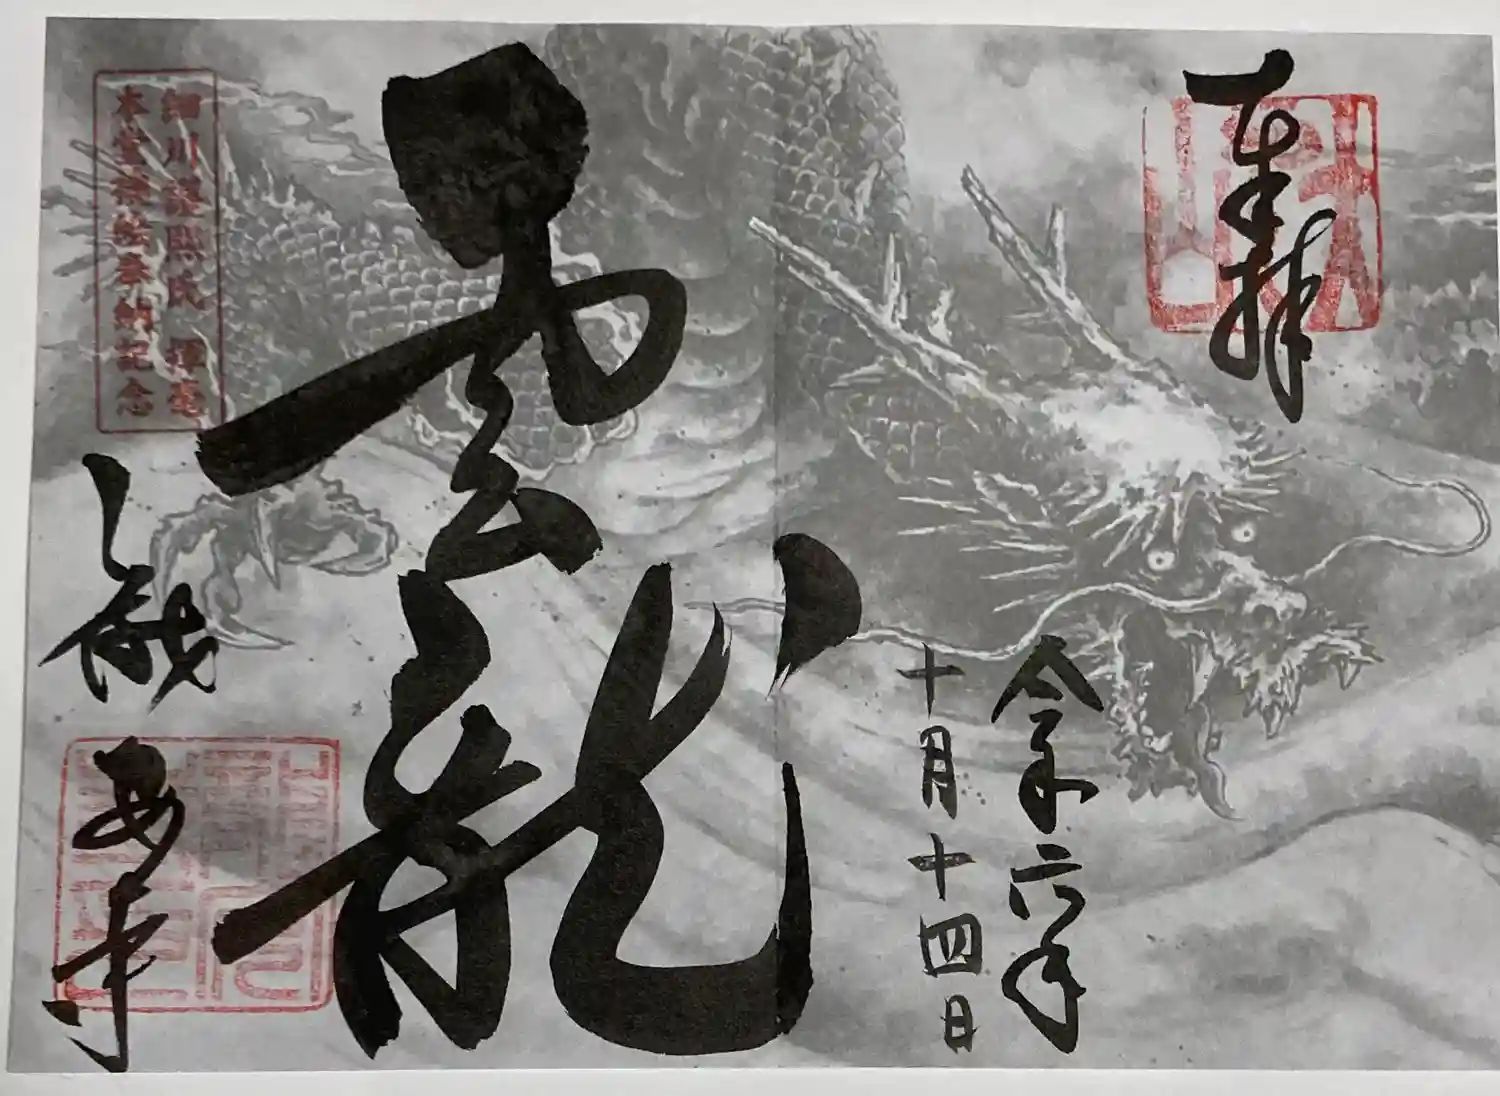 奉拝
令和六年
十月十四日
雲龍
細川護熙氏 揮毫
本堂襖絵奉納記念
龍安寺